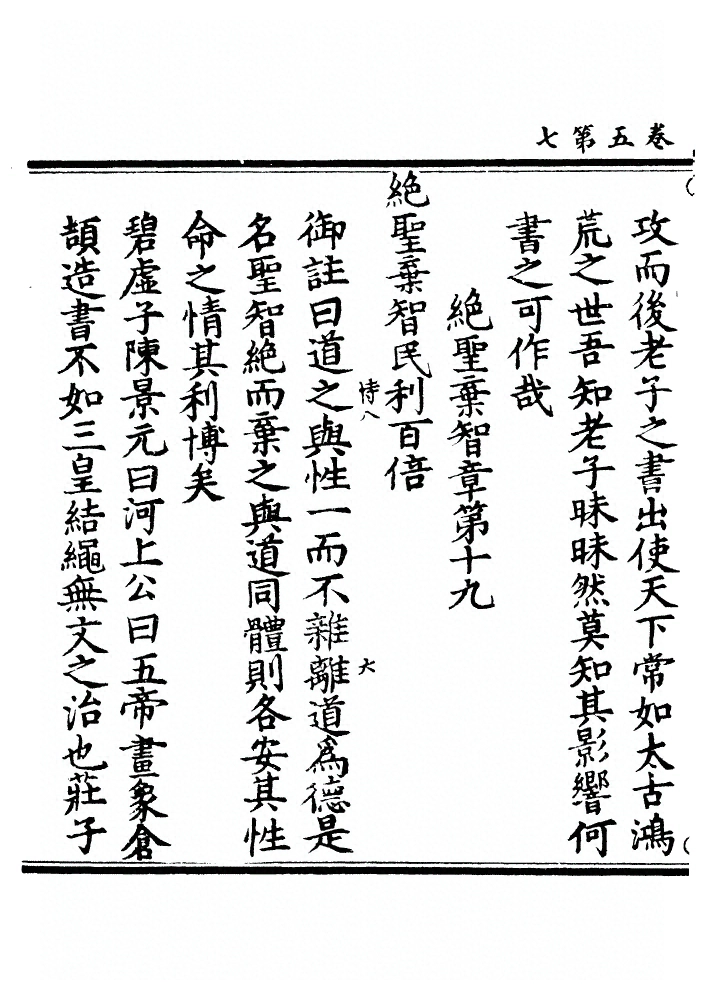 卷五第七
攻而後老子之書出使天下常如太古鴻
荒之世吾知老子昧昧然莫知其影響何
書之可作哉
絶聖棄智章第十九
絶聖棄智民利百倍
恃八
大
御註曰道之與性一而不雜離道爲德是
名聖智絶而棄之與道同體則各安其性
命之情其利博矣
碧虛子陳景元曰河上公曰五帝畫象倉
頡造書不如三皇結繩無文之治也莊子